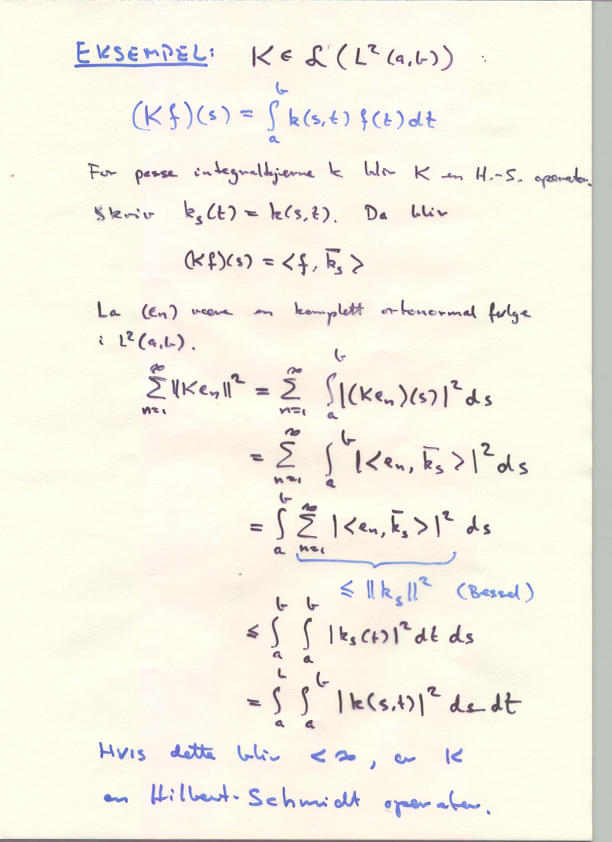 EKSEMPEL: K ∈ 𝓛(L²(a,b)) :
(Kf)(s) = ∫_a^b k(s,t) f(t) dt
For passe integralkjerne k blir K en H.-S. operator.
Skriv k_s(t) = k(s,t). Da blir
(Kf)(s) = <f, k̄_s>
La (en) være en komplett ortonormal følge
i L²(a,b).
∑_{n=1}^∞ ||Ken||² = ∑_{n=1}^∞ ∫_a^b |(Ken)(s)|² ds
= ∑_{n=1}^∞ ∫_a^b |<en, k̄_s>|² ds
= ∫_a^b ∑_{n=1}^∞ |<en, k̄_s>|² ds
≤ ||k_s||² (Bessel)
≤ ∫_a^b ∫_a^b |k_s(t)|² dt ds
= ∫_a^b ∫_a^b |k(s,t)|² ds dt
Hvis dette blir < ∞, er K
en Hilbert-Schmidt operator.